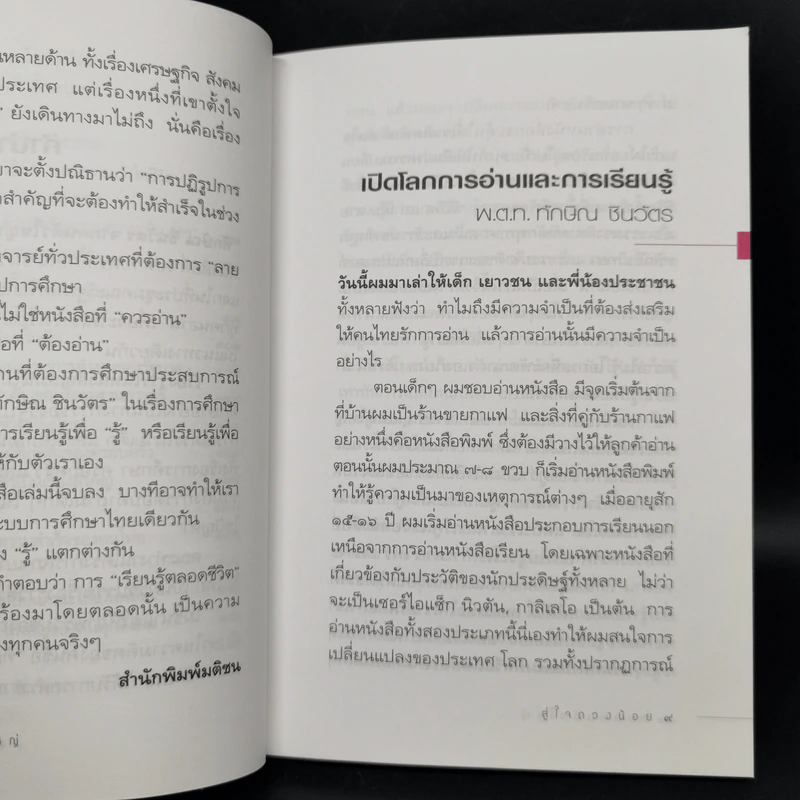 นหลายด้าน ทั้งเรื่องเศรษฐกิจ สังคม
ประเทศ แต่เรื่องหนึ่งที่เขาตั้งใจ
” ยังเดินทางมาไม่ถึง นั่นคือเรื่อง
าจะตั้งปณิธานว่า “การปฏิรูปการ
สำคัญที่จะต้องทำให้สำเร็จในช่วง
จารย์ทั่วประเทศที่ต้องการ “ลาย
ปการศึกษา
ไม่ใช่หนังสือที่ “ควรอ่าน”
อที่ “ต้องอ่าน”
านที่ต้องการศึกษาประสบการณ์
ทักษิณ ชินวัตร” ในเรื่องการศึกษา
การเรียนรู้เพื่อ “รู้” หรือเรียนรู้เพื่อ
ห้กับตัวเราเอง
สือเล่มนี้จบลง บางทีอาจทำให้เรา
ะบบการศึกษาไทยเดียวกัน
ง “รู้” แตกต่างกัน
คำตอบว่า การ “เรียนรู้ตลอดชีวิต”
ร้องมาโดยตลอดนั้น เป็นความ
งทุกคนจริงๆ
สำนักพิมพ์มติชน
ญ่
เปิดโลกการอ่านและการเรียนรู้
พ.ต.ท. ทักษิณ ชินวัตร
วันนี้ผมมาเล่าให้เด็ก เยาวชน และพี่น้องประชาชน
ทั้งหลายฟังว่า ทำไมถึงมีความจำเป็นที่ต้องส่งเสริม
ให้คนไทยรักการอ่าน แล้วการอ่านนั้นมีความจำเป็น
อย่างไร
ตอนเด็กๆ ผมชอบอ่านหนังสือ มีจุดเริ่มต้นจาก
ที่บ้านผมเป็นร้านขายกาแฟ และสิ่งที่คู่กับร้านกาแฟ
อย่างหนึ่งคือหนังสือพิมพ์ ซึ่งต้องมีวางไว้ให้ลูกค้าอ่าน
ตอนนั้นผมประมาณ ๗-๘ ขวบ ก็เริ่มอ่านหนังสือพิมพ์
ทำให้รู้ความเป็นมาของเหตุการณ์ต่างๆ เมื่ออายุสัก
๑๕-๑๖ ปี ผมเริ่มอ่านหนังสือประกอบการเรียนนอก
เหนือจากการอ่านหนังสือเรียน โดยเฉพาะหนังสือที่
เกี่ยวข้องกับประวัติของนักประดิษฐ์ทั้งหลาย ไม่ว่า
จะเป็นเซอร์ไอแซ็ก นิวตัน, กาลิเลโอ เป็นต้น การ
อ่านหนังสือทั้งสองประเภทนี้นี่เองทำให้ผมสนใจการ
เปลี่ยนแปลงของประเทศ โลก รวมทั้งปรากฏการณ์
สู่ใจดวงน้อย ๙